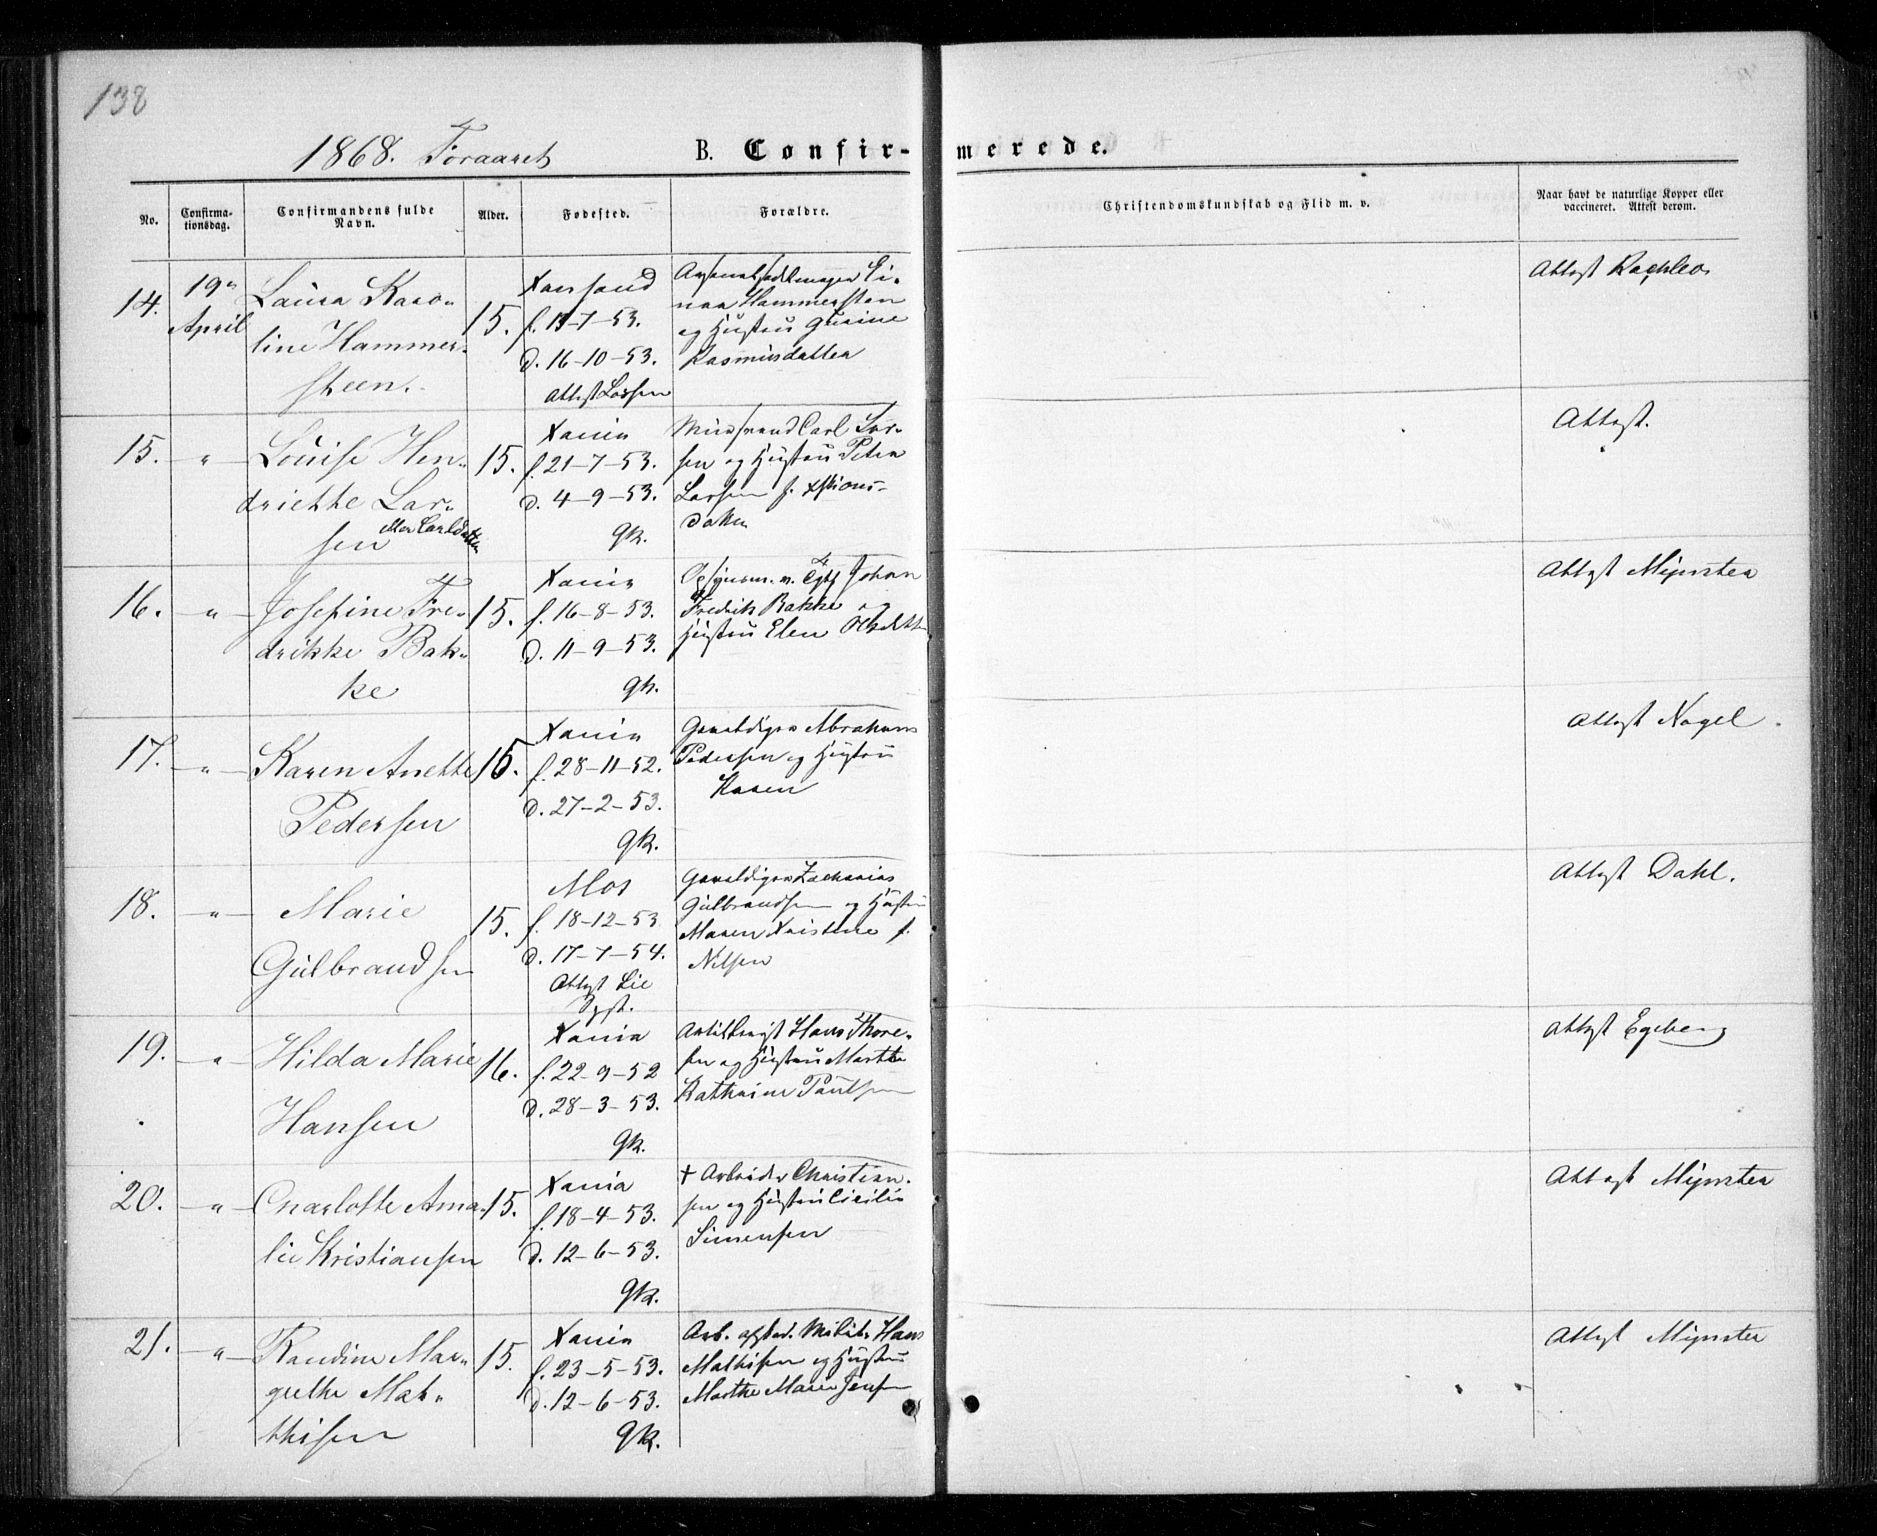 138
1868. Foraaret B. Confir-merede.
No. Confirma-tionsdag. Confirmandens fulde Navn. Alder. Fødested. Forældre. Christendomskundskab og Flid m. v. Naar havt de naturlige Kopper eller vaccineret. Attest derom.
14. 19de April
Laura Karo-
line Hammer-
steen.
15.
Xansand
f. 13-7-53.
d. 16-10-53.
Attest Lassen
Hammersten
og Hustru Gurine
Rasmusdatter
Attest
15. "
Louise Hen-
driette Lar-
sen eller Carlsdatter
15.
Xania
f. 21-7-53.
d. 4-9-53.
gk.
Carl Lar-
sen og Hustru Petra
Larsen f.
datter
Attest.
16. "
Josefine Fre-
drikke Bak-
ke
15.
Xania
f. 16-8-53.
d. 11-9-53.
gk.
Johan
Fredrik Bakke og
Hustru Elen
Attest Mynster
17. "
Karen Anette
Pedersen
15.
Xania
f. 28-11-52.
d. 27-2-53.
gk.
Abraham
Pedersen og Hustru
Karen
Attest Nagel.
18. "
Marie
Gulbrandsen
15.
Mos
f. 18-12-53
d. 17-7-54.
Attest Lie
Zacharias
Gulbrandsen og Hustru
Maren Kristine f.
Nilsen
Attest Dahl.
19. "
Hilda Marie
Hansen
16.
Xania
f. 22-9-52
d. 28-3-53.
gk.
Hans Thore-
sen og Hustru Marthe
Kathrine Paulsen
Attest Egeberg
20. "
Charlotte Ama-
lie Kristiansen
15.
Xania
f. 18-4-53.
d. 12-6-53.
gk.
† Arbeider Christian-
sen og Hustru Cicilie
Simensen
Attest Mynster
21. "
Randine Mar-
grethe Mat-
thisen
15.
Xania
f. 23-5-53.
d. 12-6-53.
gk.
Arb. Hans
Mathisen og Hustru
Marthe Marie Jensen
Attest Mynster